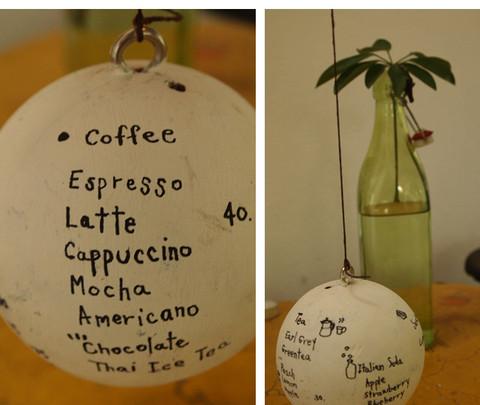 Coffee
Espresso
Latte
40.
Cappuccino
Mocha
Americano
Chocolate
Thai Ice Tea
Tea
Earl Grey
Greentea
Peach
Lemon
30.
Italian Soda
Apple
Strawberry
Blueberry